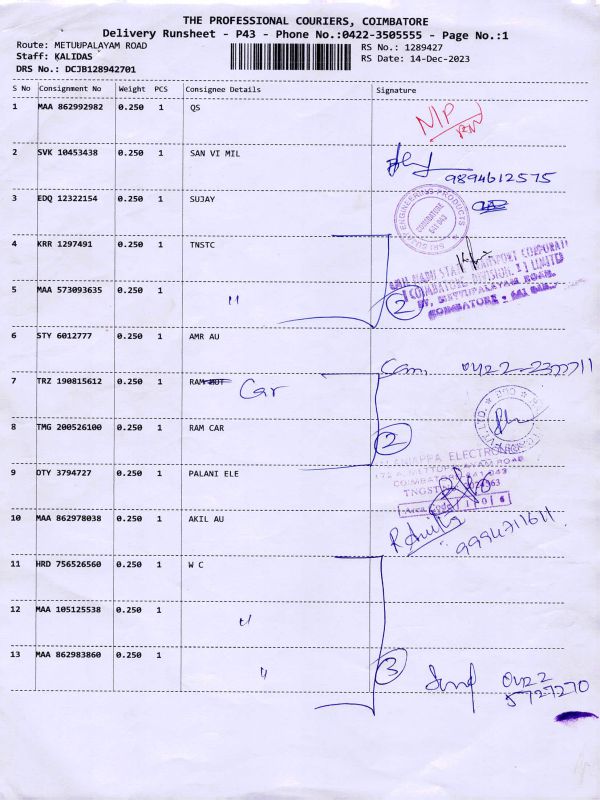 THE PROFESSIONAL COURIERS, COIMBATORE
Delivery Runsheet - P43 - Phone No.:0422-3505555 - Page No.:1
Route: METUUPALAYAM ROAD RS No.: 1289427
Staff: KALIDAS RS Date: 14-Dec-2023
DRS No.: DCJB128942701
S No Consignment No Weight PCS Consignee Details Signature
1 MAA 862992982 0.250 1 QS N/P
2 SVK 10453438 0.250 1 SAN VI MIL 9894612575
3 EDQ 12322154 0.250 1 SUJAY SRI SUJAY ENGINEERING PRODUCTS COIMBATORE 641 043
4 KRR 1297491 0.250 1 TNSTC
5 MAA 573093635 0.250 1 " 2
COIMBATORE DIVISION
METTUPALAYAM ROAD,
COIMBATORE - 641
6 STY 6012777 0.250 1 AMR AU
7 TRZ 190815612 0.250 1 RAM Car
8 TMG 200526100 0.250 1 RAM CAR 2
9 DTY 3794727 0.250 1 PALANI ELE
ELECTRON
COIMBATORE
TNGST
Area Code 106
10 MAA 862978038 0.250 1 AKIL AU 9994711611
11 HRD 756526560 0.250 1 W C
12 MAA 105125538 0.250 1 "
13 MAA 862983860 0.250 1 " 3 0422
5727270